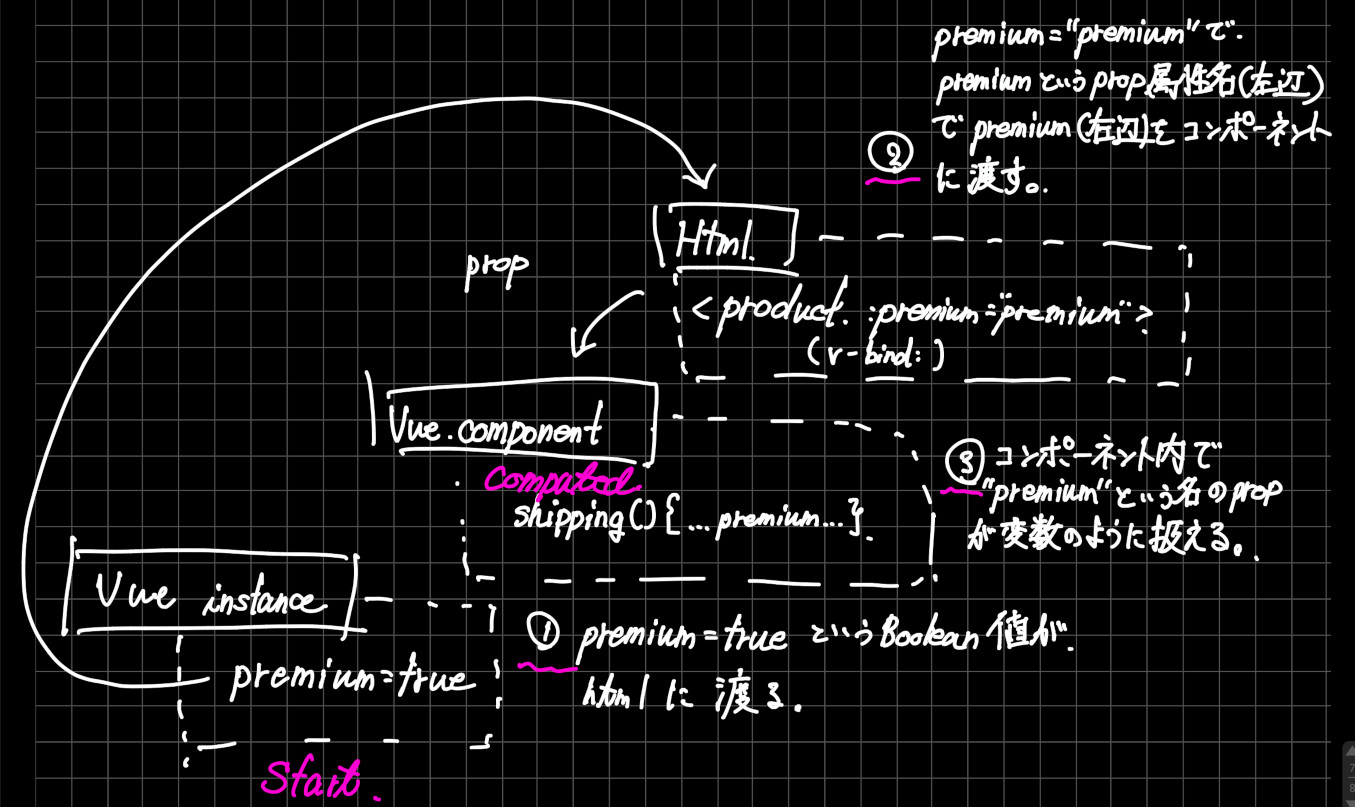 premium="premium"で.
premiumというprop属性名(左辺)
でpremium(右辺)をコンポーネント
② に渡す。
Html
prop
<product. :premium="premium">
(v-bind:)
Vue.component
Computed.
shipping(){...premium...}.
③ コンポーネント内で
"premium"という名のprop
が変数のように扱える。
Vue instance
premium=true
① premium=true というBoolean値が.
htmlに渡る.
Start.
7
8